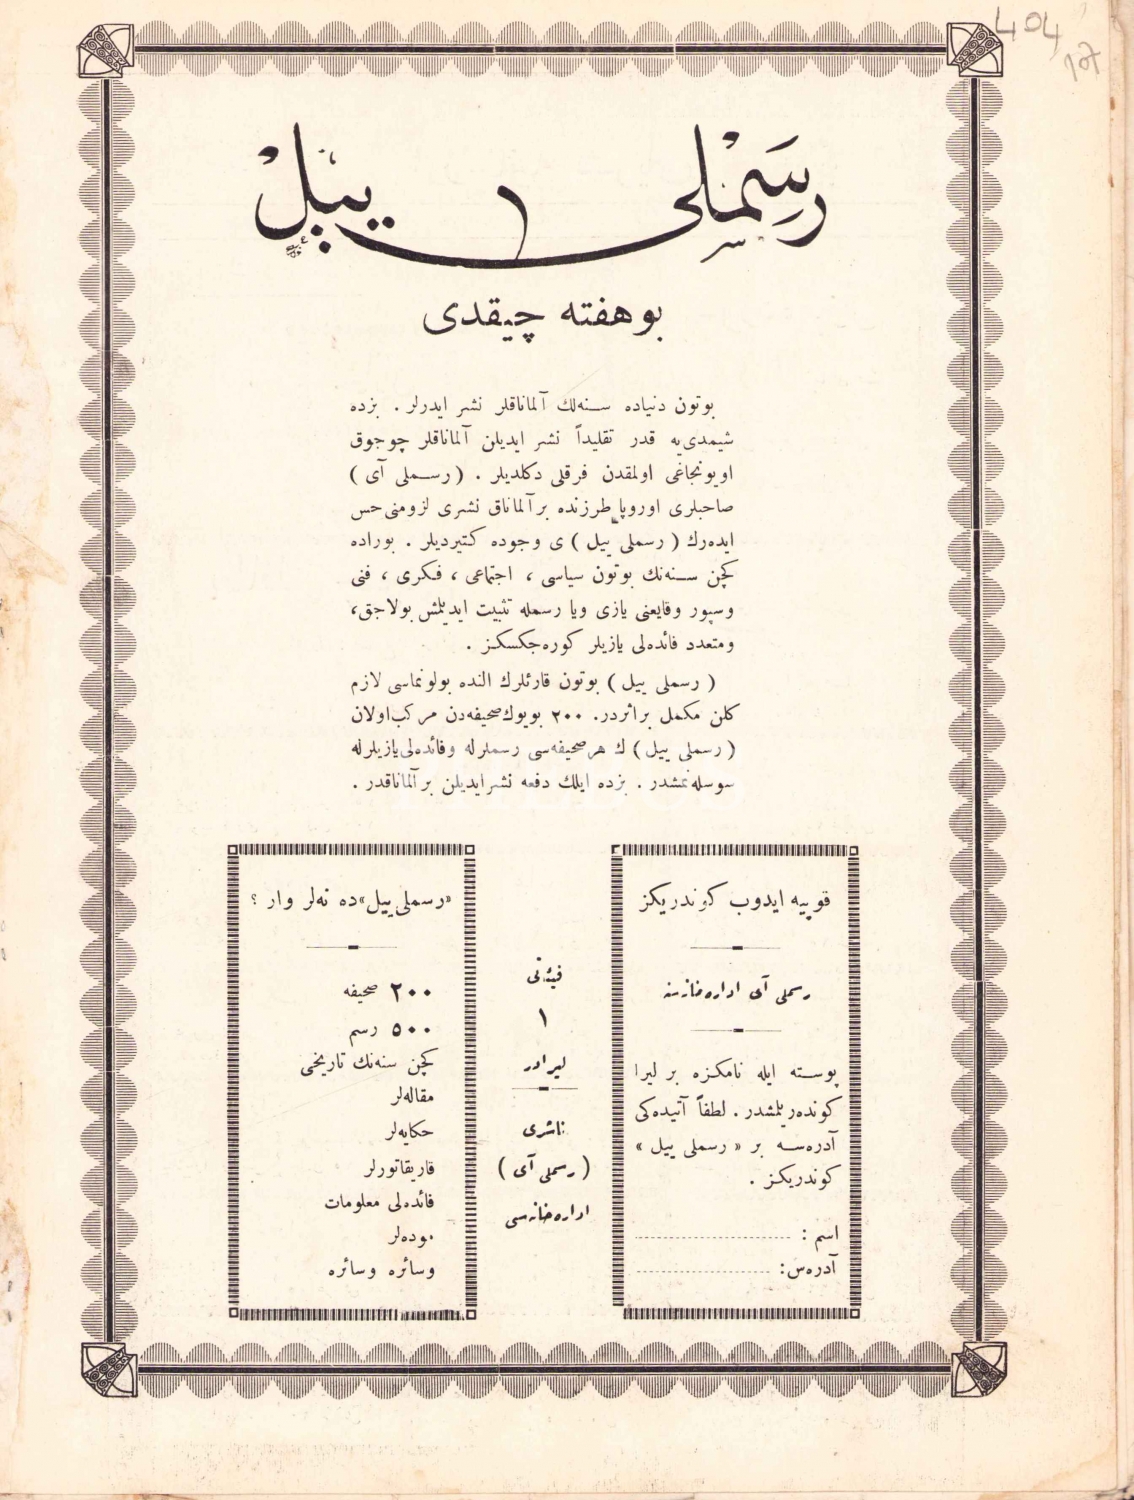 رسملی ییل
بو هفته چیقدی
بوتون دنیاده سنه‌لك آلماناقلر نشر ایدرلر . بزده
شیمدی‌یه قدر تقلیداً نشر ایدیلن آلماناقلر چوجوق
اویونجاغی اولمقدن فرقلی دكلدیلر . ( رسملی آی )
صاحبلری اوروپا طرزنده بر آلماناق نشری لزومنی حس
ایده‌رك ( رسملی ییل ) ی وجوده كتیردیلر . بوراده
كچن سنه‌نك بوتون سیاسی ، اجتماعی ، فكری ، فنی
وسپور وقایعنی یازی ویا رسمله تثبیت ایدیلمش بولاجق،
ومتعدد فائده‌لی یازیلر كوره‌جكسكز .
( رسملی ییل ) بوتون قارئلرك النده بولونماسی لازم
كلن مكمل بر اثردر. ۲۰۰ بویوك صحیفه‌دن مركب اولان
( رسملی ییل ) ك هر صحیفه‌سی رسملرله وفائده‌لی یازیلرله
سوسله‌نمشدر . بزده ایلك دفعه نشر ایدیلن بر آلماناقدر .
قوپیه ایدوب كوندریكز
رسملی آی اداره‌خانه‌سنه
پوسته ایله نامكزه بر لیرا
كونده‌ریلمشدر . لطفاً آتیده‌كی
آدره‌سه بر « رسملی ییل »
كوندریكز .
اسم :
آدره‌س:
فیئاتی
۱
لیرادر
ناشری
( رسملی آی )
اداره‌خانه‌سی
«رسملی ییل»ده نه‌لر وار ؟
۲۰۰ صحیفه
۵۰۰ رسم
كچن سنه‌نك تاریخی
مقاله‌لر
حكایه‌لر
قاریقاتورلر
فائده‌لی معلومات
موده‌لر
وسائره وسائره
404